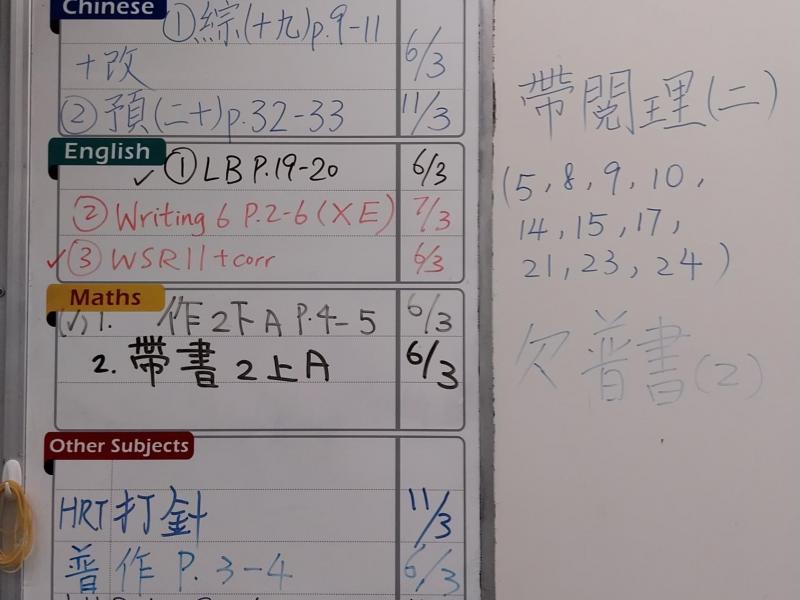 Chinese
①綜(十九)p.9-11
+改 6/3
②預(二十)p.32-33 11/3
English
✓ ①LB P.19-20 6/3
②Writing 6 P.2-6(XE) 7/3
✓③WSR11+corr 6/3
Maths
(✓)1. 作2下A P.4-5 6/3
2. 帶書2上A 6/3
Other Subjects
HRT打針 11/3
普作 P.3-4 6/3
帶閱理(二)
(5,8,9,10,
14,15,17,
21,23,24)
欠普書(2)